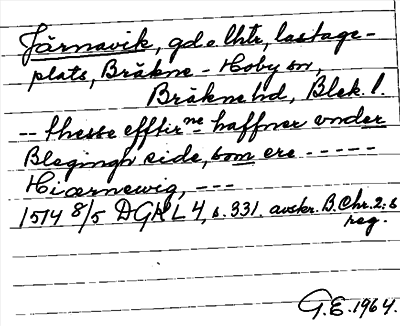 Järnavik, gd o. lhtr, lastage-
plats, Bräkne-Hoby sn,
Bräkne hd, Blek. l.
-- thesse effter ne haffner under
Blegingh side, som ere -----
Hiærnewig, ---
1514 8/5 DGKL 4, s. 331. avskr. B. Chr. 2:s
reg.
G.E. 1964.